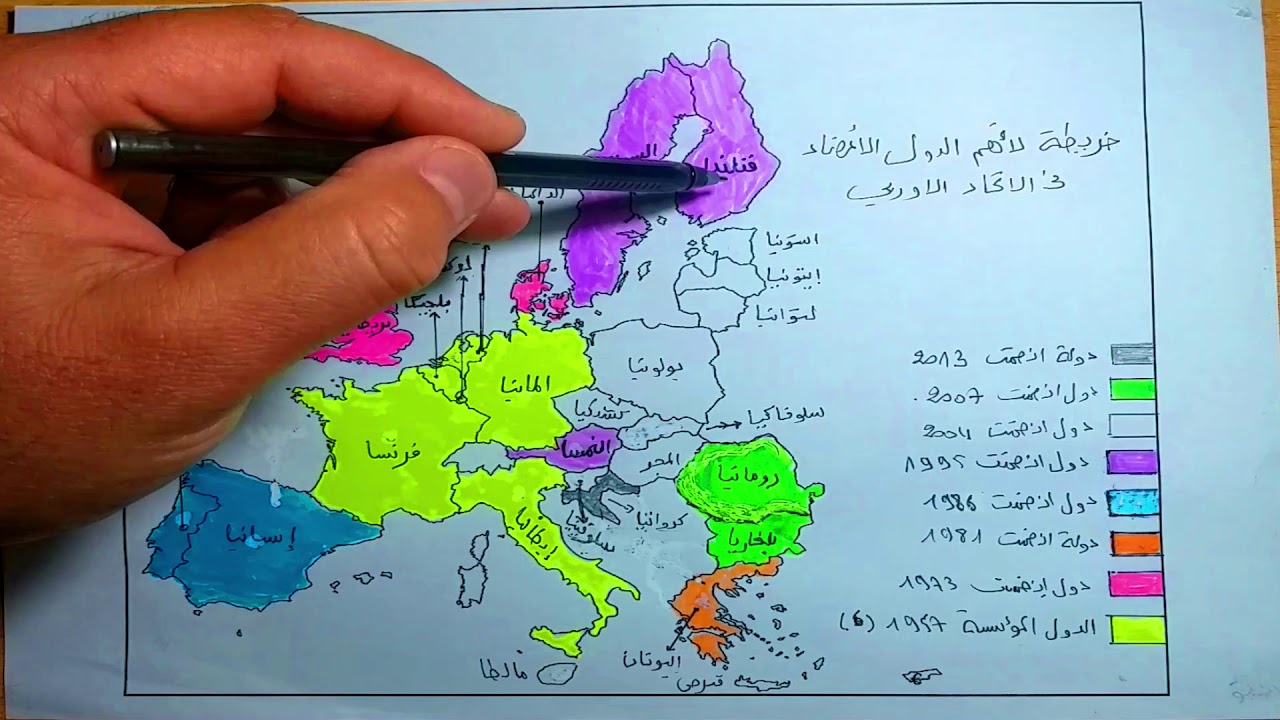 خريطة لأهم الدول الأعضاء
في الاتحاد الاوربي
فنلندا
استونيا
ليتونيا
لتوانيا
بلجيكا
المانيا
بولونيا
سلوفاكيا
فرنسا
النمسا
المجر
رومانيا
كرواتيا
إسبانيا
إيطاليا
بلغاريا
اليونان
مالطا
قبرص
دولة انضمت 2013
دول انضمت 2007.
دول انضمت 2004
دول انضمت 1995
دول انضمت 1986
دولة انضمت 1981
دول إنضمت 1973
الدول المؤسسة 1957 (6)